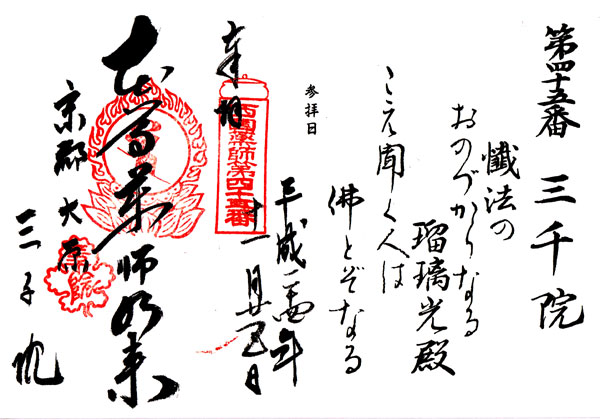 第四十五番 三千院
懺法の
おのづからなる
瑠璃光殿
こえ聞く人は
佛とぞなる
参拝日
平成二四年
十一月廿五日
奉拝
西国薬師第四十五番
本尊薬師如来
京都大原
三千院